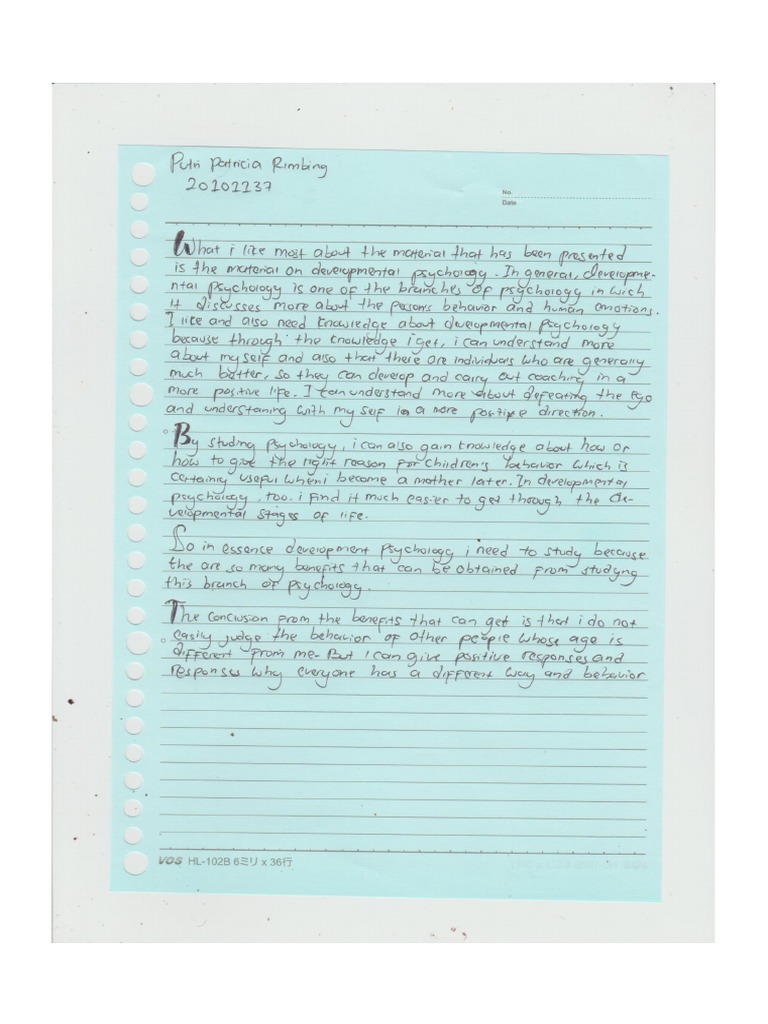 Putri Patricia Rimbing
20101137
No.
Date
What i like most about the material that has been presented
is the material on developmental psychology. In general, developme-
ntal psychology is one of the branches of psychology in wich
it discusses more about the person's behavior and human emotions.
I like and also need knowledge about developmental psychology
because through the knowledge i get, i can understand more
about my self and also that there are individuals who are generally
much better, so they can develop and carry out coaching in a
more positive life. I can understand more about defeating the ego
and understaning with my self in a more positive direction.
By studing psychology, i can also gain knowledge about how or
how to give the right reason for children's behavior which is
certainly useful when i become a mother later. In developmental
psychology, too. i find it much easier to get through the de-
velopmental stages of life.
So in essence development psychology i need to study because
the are so many benefits that can be obtained from studyng
this branch of psychology.
The conclusion from the benefits that can get is that i do not
easily judge the behavior of other people whose age is
different from me. But I can give positive responses and
responses why everyone has a different way and behavior
VOS HL-102B 6ミリ x 36行